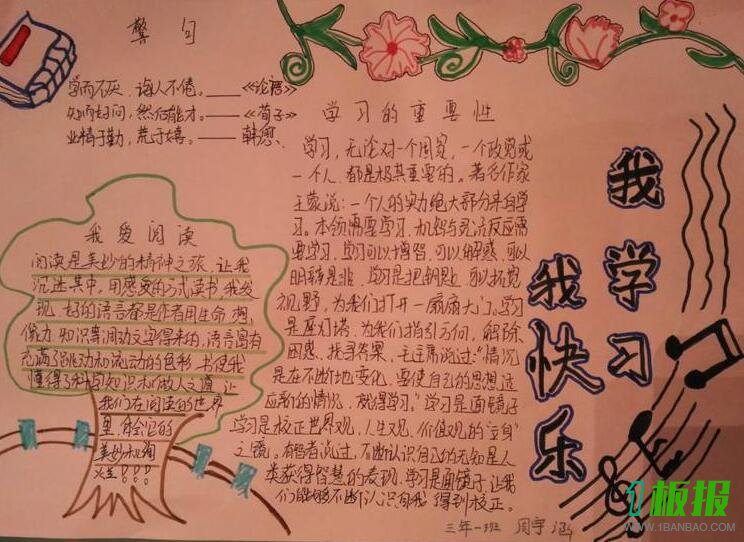 警句
学而不厌、诲人不倦。——《论语》
知而好问,然后能才。——《荀子》
业精于勤,荒于嬉。——韩愈
学习的重要性
学习,无论对一个国家,一个政党或
一个人,都是极其重要的。著名作家
王蒙说:一个人的实力绝大部分来自学
习。本领需要学习,机智与灵活反应需
要学习,学习可以增智,可以解惑,可以
明辨是非。学习是把钥匙,可以拓宽
视野,为我们打开一扇扇大门,学习
是座灯塔,为我们指引方向,解除
困惑,找寻答案,毛主席说过:"情况
是在不断地变化,要使自己的思想适
应新的情况,就得学习。"学习是面镜子
学习是校正世界观,人生观、价值观的"立身"
之镜。有哲者说过,不断认识自己的无知是人
类获得智慧的表现,学习是面镜子,让我
们能够不断认识自我 得到校正。
我爱阅读
阅读是美妙的精神之旅,让我
沉迷其中,用感受的方式读书,我发
现,好的语言都是作者用生命,想,
像力,知识等调动文字得来的,语言富有
充满了跳动和流动的色彩,书使我
懂得了科学知识和做人之道,让
我们在阅读的世界
里体验它的
美妙和绚
烂!!!
我学习
我快乐
三年一班 周宇涵
1板报
WWW.1BANBAO.COM